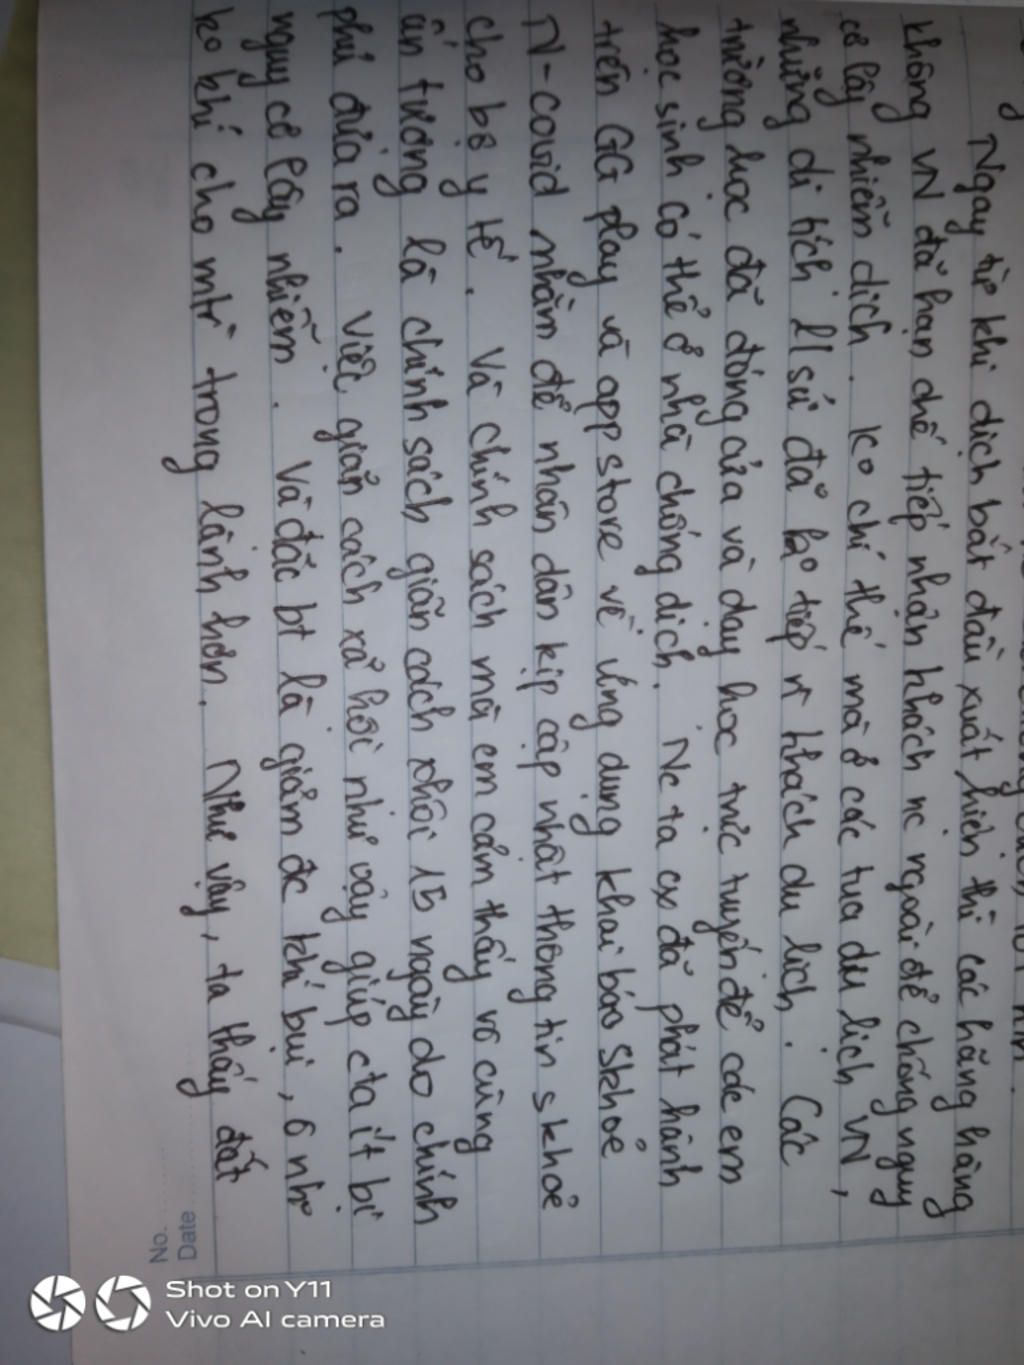 Ngay từ khi dịch bắt đầu xuất hiện thì các hãng hàng
không VN đã hạn chế tiếp nhận khách nc ngoài để chống nguy
cơ lây nhiễm dịch. Ko chỉ thế mà ở các tua du lịch VN,
những di tích lỊ sử đã ko tiếp n khách du lịch. Các
trường học đã đóng cửa và dạy học trực tuyến để các em
học sinh có thể ở nhà chống dịch. Nc ta cx đã phát hành
trên GG play và app store về ứng dụng khai báo skhỏe
N-covid nhằm để nhân dân kịp cập nhật thông tin skhỏe
cho bộ y tế. Và chính sách mà em cảm thấy vô cùng
ấn tượng là chính sách giãn cách xhội 15 ngày do chính
phủ đưa ra. Việc giãn cách xã hội như vậy giúp cta ít bị
nguy cơ lây nhiễm. Và đặc bt là giảm đc khí bụi, ô nh
ko khí cho mtr trong lành hơn. Như vậy, ta thấy đất
No.
Date
Shot on Y11
Vivo AI camera